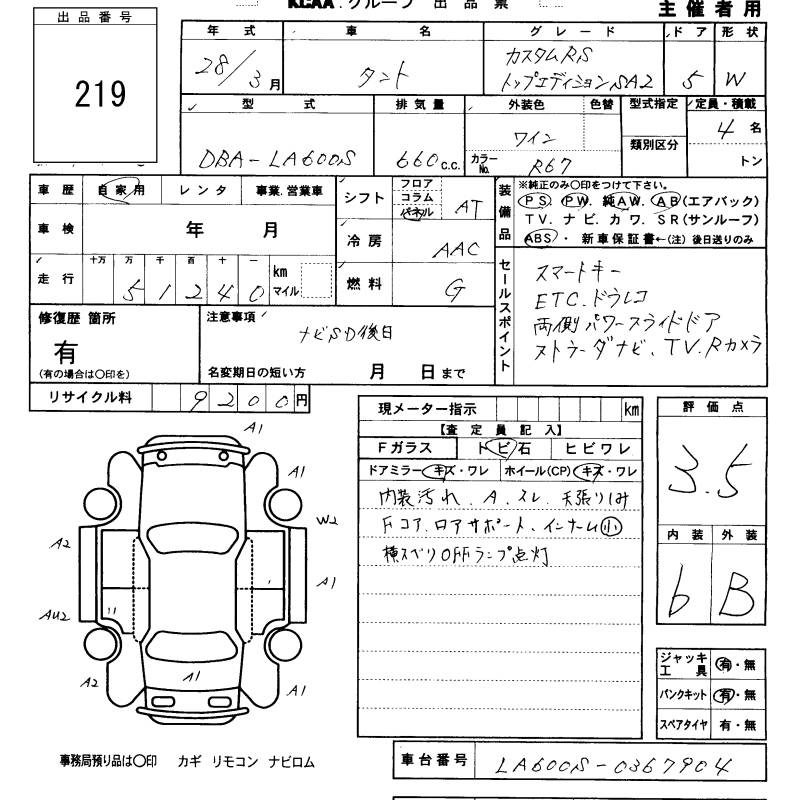 KCAA.グループ 出品票
主催者用
出品番号
219
年式 車名 グレード ドア 形状
28/3月 タント カスタムRS トップエディションSA2 5 W
型式 排気量 外装色 色替 型式指定 定員・積載
類別区分
DBA-LA600S 660c.c. ワイン カラーNo. R67 4名
トン
車歴 自家用 レンタ 事業.営業車
車検 年 月
走行 十万 万 千 百 十 一 km マイル
51240
シフト フロア コラム パネル AT
冷房 AAC
燃料 G
装備品 ※純正のみ○印をつけて下さい。
PS. PW. 純AW. AB(エアバック)
TV. ナビ. カワ. SR(サンルーフ)
ABS・ 新車保証書←(注)後日送りのみ
セールスポイント
スマートキー
ETC.ドラレコ
両側パワースライドドア
ストラーダナビ、TV.Rカメラ
修復歴 箇所
有
(有の場合は○印を)
注意事項
ナビSD後日
名変期日の短い方 月 日まで
リサイクル料 9200円
現メーター指示 km
【査定員記入】
Fガラス トビ石 ヒビワレ
ドアミラー キズ・ワレ ホイール(CP) キズ・ワレ
内装汚れ、A.スレ.天張りシミ
Fコア.ロアサポート、インナーム小
横スベリOFFランプ点灯
評価点
3.5
内装 外装
b B
A1
A1
W2
A2
A1
AU2
A2
A1
A1
ジャッキ工具 有・無
パンクキット 有・無
スペアタイヤ 有・無
事務局預り品は○印 カギ リモコン ナビロム
車台番号 LA600S-0367904